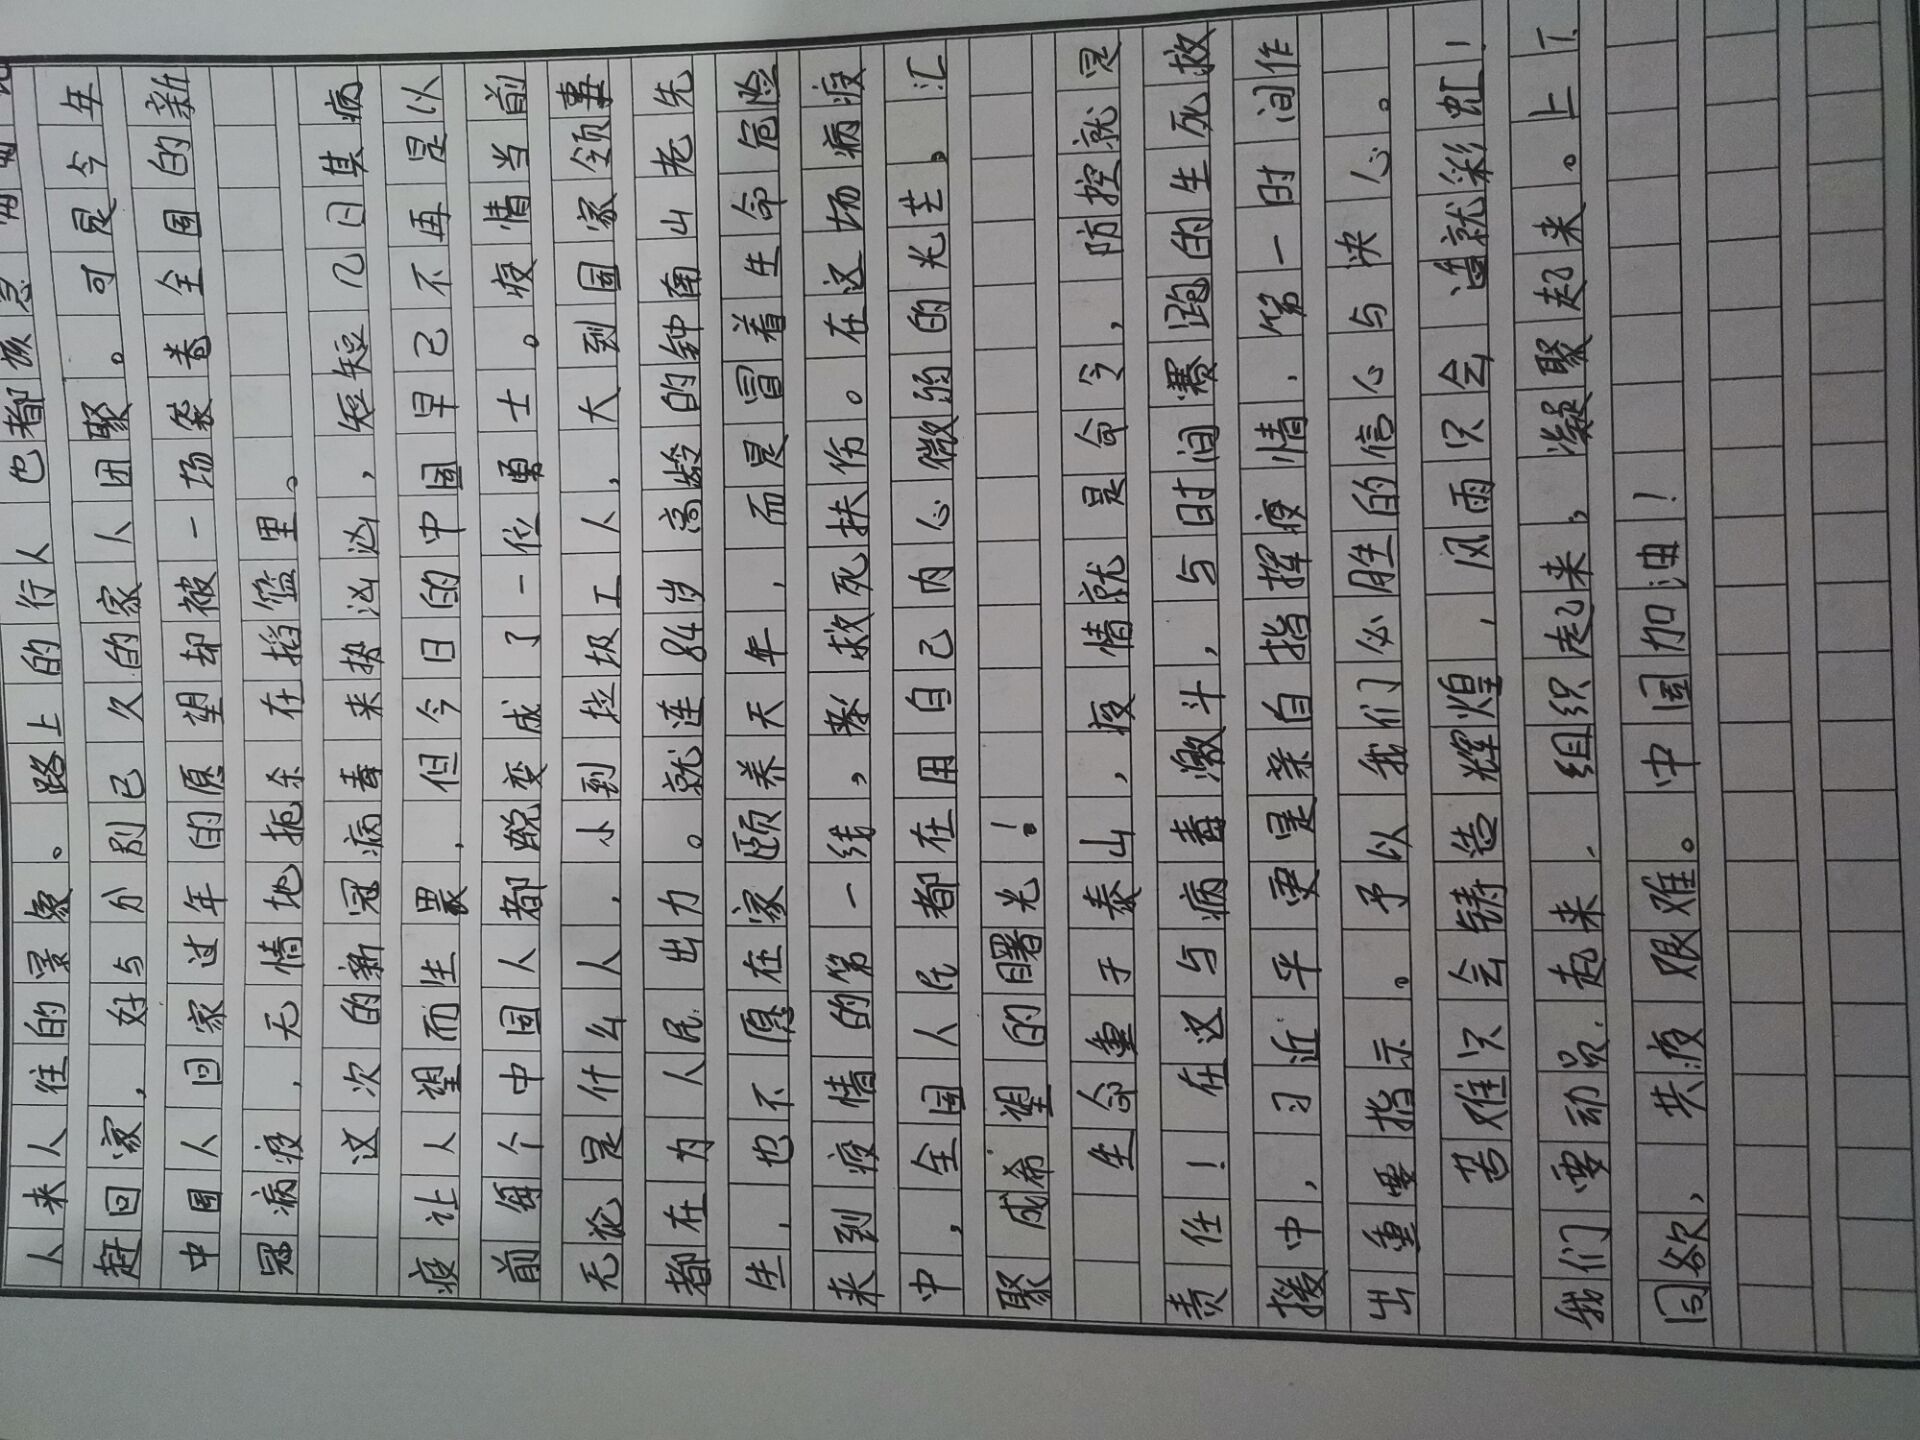 也都该
人来人往的景象。路上的行人
赶回家,好与分别已久的家人团聚。可是今年
中国人回家过年的原望却被一场袭卷全国的新
冠病疫,无情地扼杀在摇篮里。
这次的新冠病毒来势汹汹,短短几日其病
疫让人望而生畏,但今日的中国早已不再是以
前每个中国人都蜕变成了一位勇士。疫情当前
无论是什么人,小到垃圾工人,大到国家领事
都在为人民出力。就连84岁高龄的钟南山老先
生,也不愿在家颐养天年,而是冒着生命危险
来到疫情的第一线,救死扶伤。在这场病疫
中,全国人民都在用自己内心微弱的光芒。汇
聚成希望的曙光!
生命重于泰山,疫情就是命令,防控就是
责任!在这与病毒激斗,与时间赛跑的生死救
援中,习近平更是亲自指挥疫情,第一时间作
出重要指示。予以我们必胜的信心与决心。
苦难只会铸造辉煌,风雨只会造就彩虹!
我们要动员起来、组织起来,凝聚起来。上下
同欲,共渡艰难。中国加油!